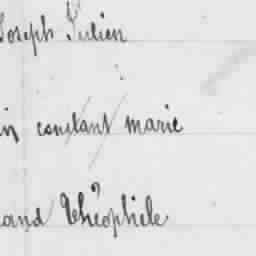 Joseph Julien
in constant marie
and Théophile